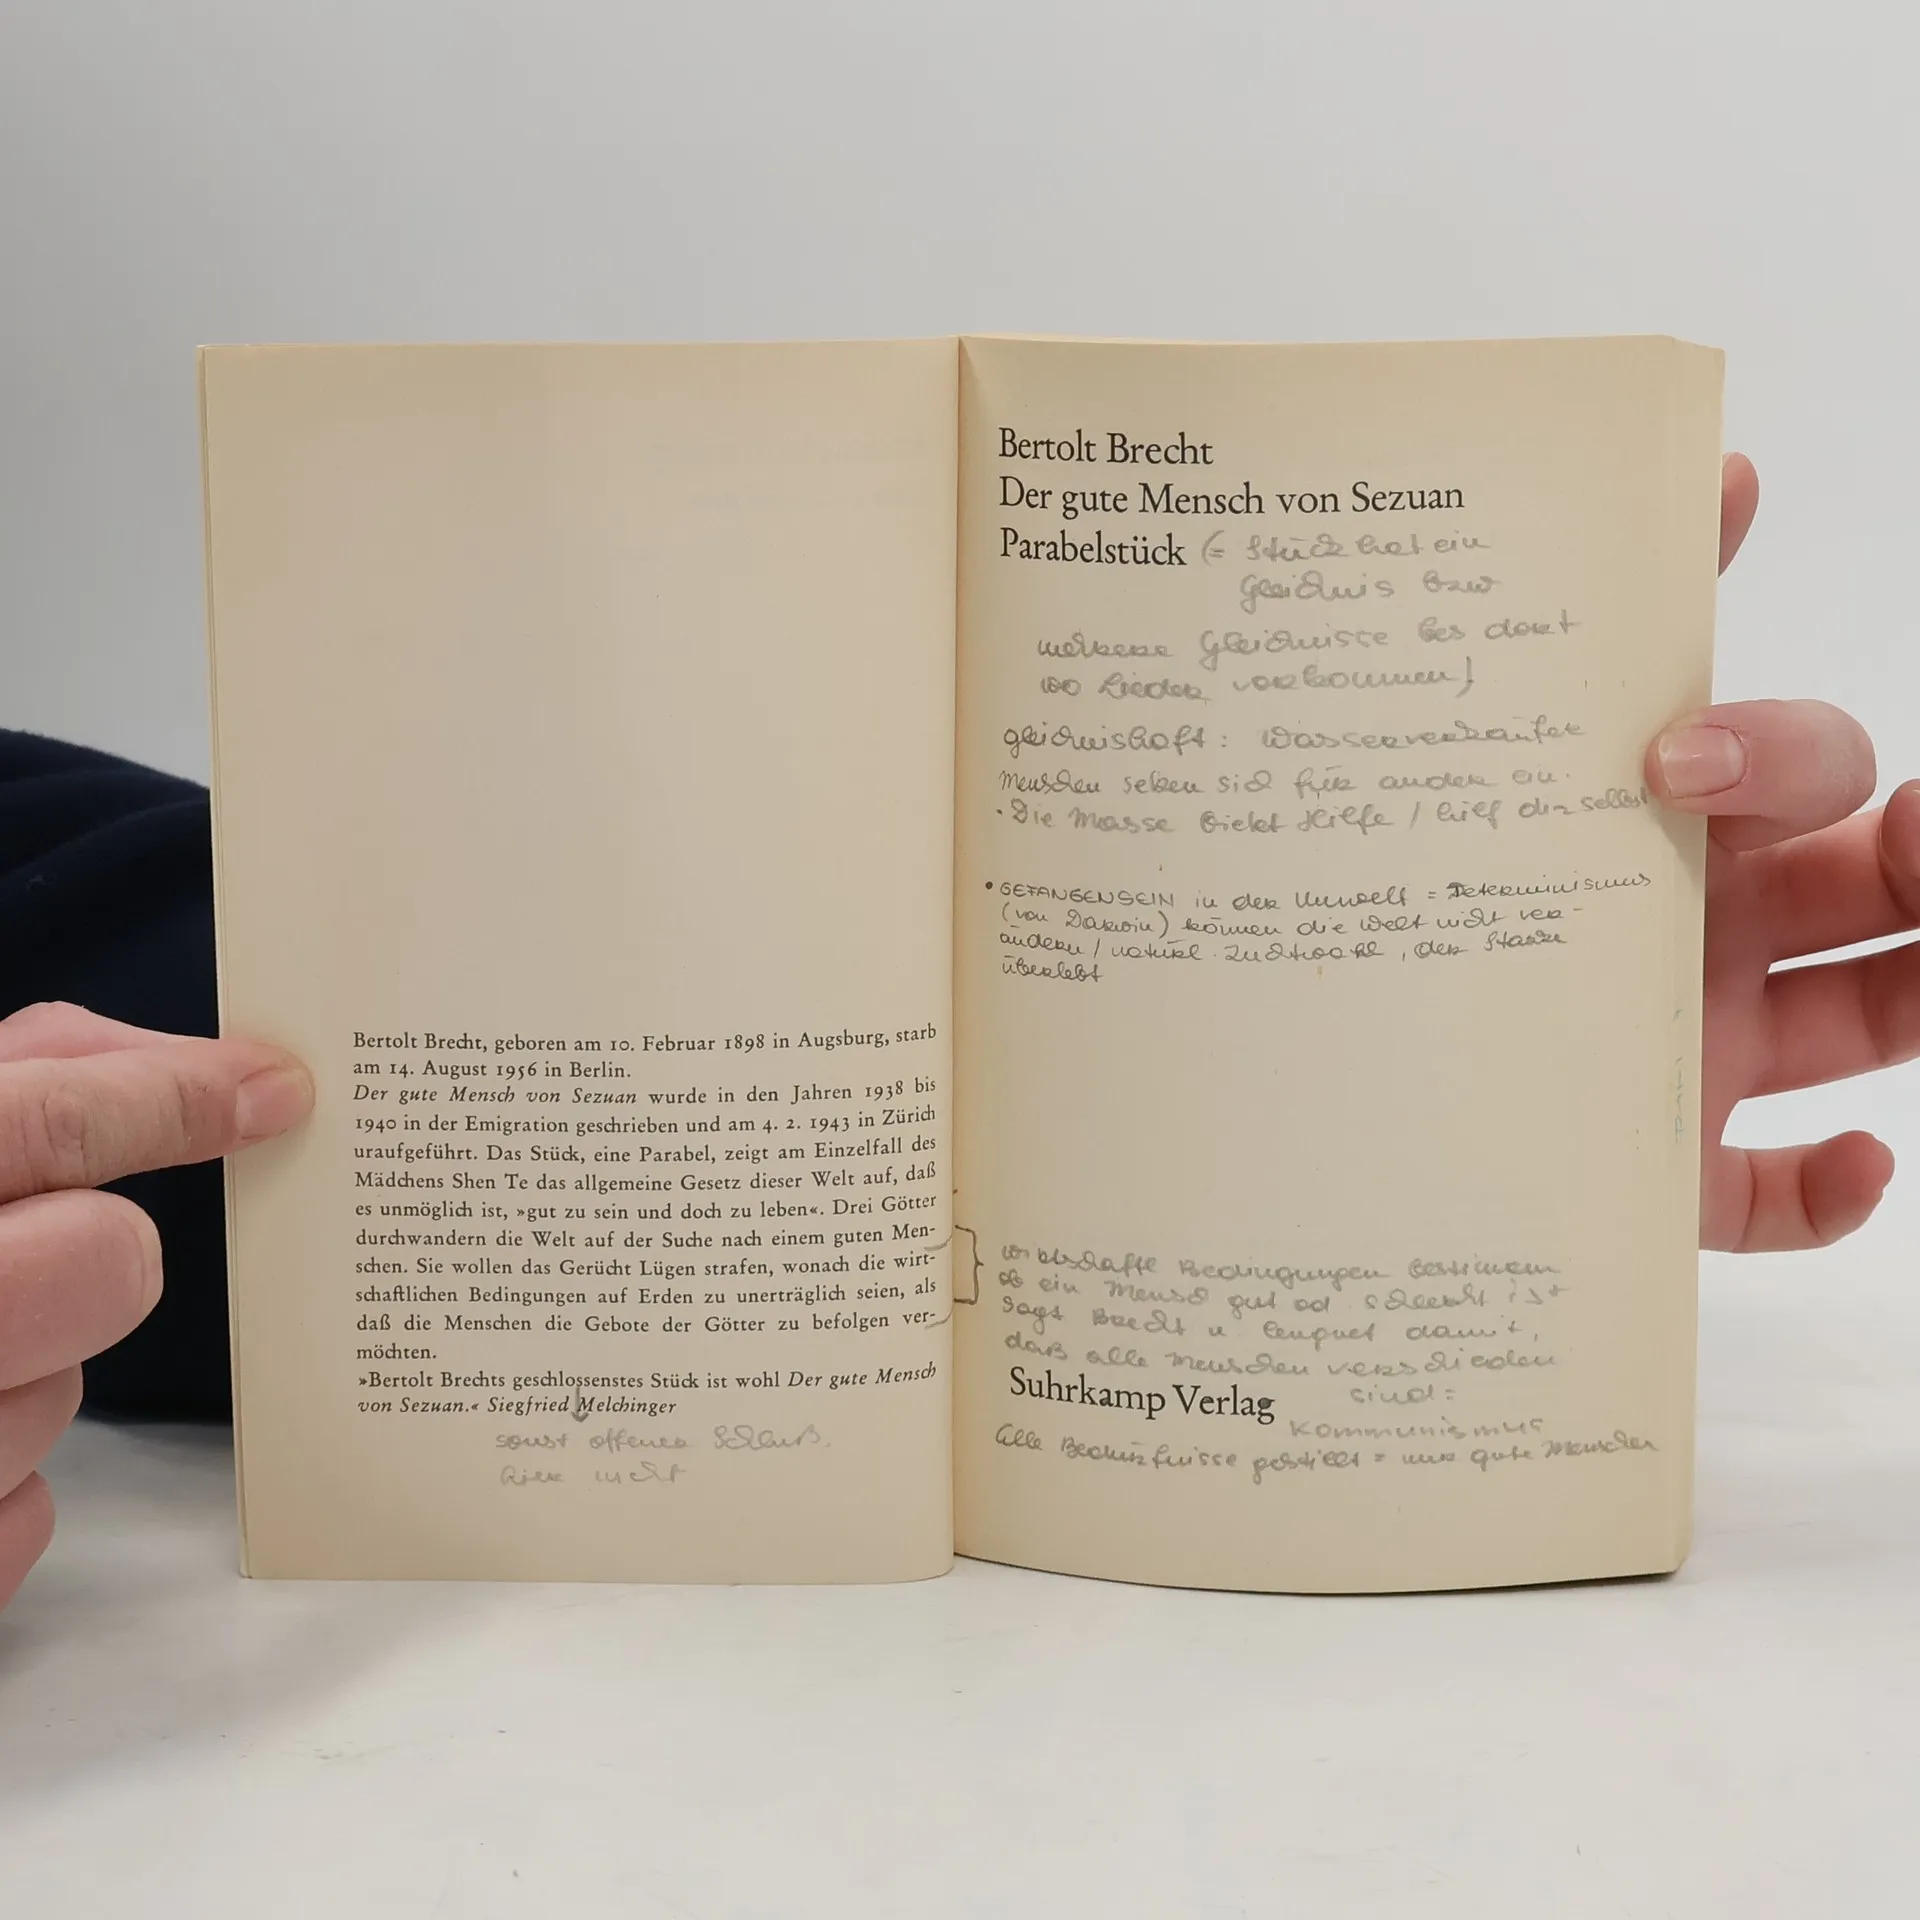 Bertolt Brecht, geboren am 10. Februar 1898 in Augsburg, starb
am 14. August 1956 in Berlin.
Der gute Mensch von Sezuan wurde in den Jahren 1938 bis
1940 in der Emigration geschrieben und am 4. 2. 1943 in Zürich
uraufgeführt. Das Stück, eine Parabel, zeigt am Einzelfall des
Mädchens Shen Te das allgemeine Gesetz dieser Welt auf, daß
es unmöglich ist, »gut zu sein und doch zu leben«. Drei Götter
durchwandern die Welt auf der Suche nach einem guten Men-
schen. Sie wollen das Gerücht Lügen strafen, wonach die wirt-
schaftlichen Bedingungen auf Erden zu unerträglich seien, als
daß die Menschen die Gebote der Götter zu befolgen ver-
möchten.
»Bertolt Brechts geschlossenstes Stück ist wohl Der gute Mensch
von Sezuan.« Siegfried Melchinger
sonst offener Schluß,
hier nicht
Bertolt Brecht
Der gute Mensch von Sezuan
Parabelstück (= Stück hat ein
Gleichnis bzw
mehrere Gleichnisse bes dort
wo Lieder vorkommen)
gleichnishaft: Wasserverkäufer
Menschen setzen sich für andere ein.
· Die Masse bietet Hilfe / hilf dir selbst
• GEFANGENSEIN in der Umwelt = Determinismus
(von Darwin) können die Welt nicht ver-
ändern / natürl. Zuchtwahl, der Starke
überlebt
wirtschaftl Bedingungen bestimmen
ob ein Mensch gut od. schlecht ist
sagt Brecht u. leugnet damit,
daß alle Menschen verschieden
sind =
Suhrkamp Verlag
Kommunismus
Alle Bedürfnisse gestillt = nur gute Menschen